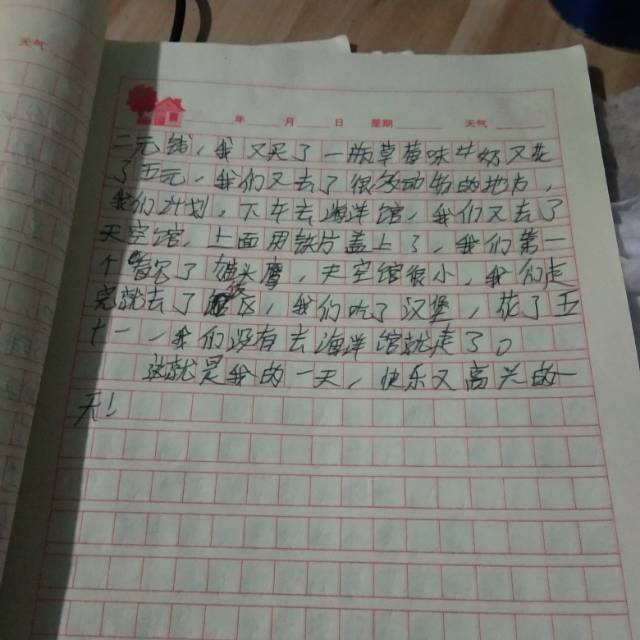 天气
年 月 日 星期 天气
二元钱，我又买了一瓶草莓味牛奶又花
了五元，我们又去了很多动物的地方，
我们计划，下午去海洋馆，我们又去了
天空馆，上面用铁片盖上了，我们第一
个看尽了猫头鹰，天空馆很小，我们走
完就去了 区，我们吃了汉堡，花了五
十一，我们没有去海洋馆就走了。
这就是我的一天，快乐又高兴的一
天！